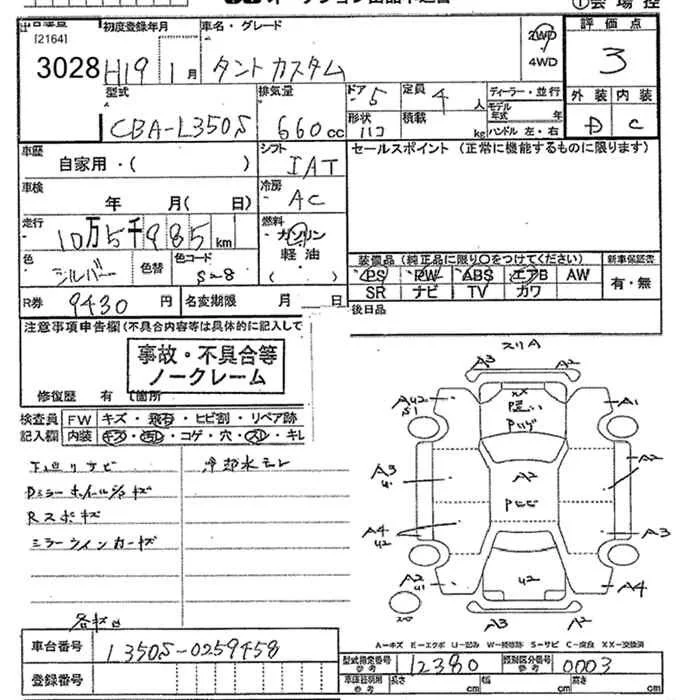 [2164]
3028
初度登録年月
H19 1月
車名・グレード
タントカスタム
2WD
4WD
評価点
3
型式
CBA-L350S
排気量
660cc
ドア 5
定員 4人
ディーラー・並行
モデル年式 年
ハンドル 左・右
形状 ハコ
積載 kg
外装 内装
D C
車歴
自家用・( )
シフト
IAT
セールスポイント (正常に機能するものに限ります)
車検
年 月( 日)
冷房
AC
走行
10万5千985km
燃料
ガソリン
軽油
( )
色
シルバー
色替
色コード
S28
装備品(純正品に限り○をつけてください)
PS PW ABS エアB AW
SR ナビ TV カワ
新車保証書
有・無
R券 9430円
名変期限 月 日
後日品
注意事項申告欄(不具合内容等は具体的に記入して
事故・不具合等
ノークレーム
修復歴 有(箇所
検査員
記入欄
FW キズ・飛石・ヒビ割・リペア跡
内装 キズ・汚れ・コゲ・穴・スレ・キレ
下廻りサビ
冷却水モレ
Dミラーホイールジョキズ
Rスポキズ
ミラーウインカーキズ
スリA
A3 A2
AU2
S1
A1
XX
Pハゲ
A3
A2
A2
Pヒビ
A4
U2
A3
A2
U1
U2
A4
スペア
A3 A2
A-キズ E-エクボ U-凹み W-補修跡 S-サビ C-腐食 XX-交換済
車台番号 L350S-0259458
登録番号
型式指定番号 参考 12380
類別区分番号 参考 0003
長さ cm
幅 cm
高さ cm